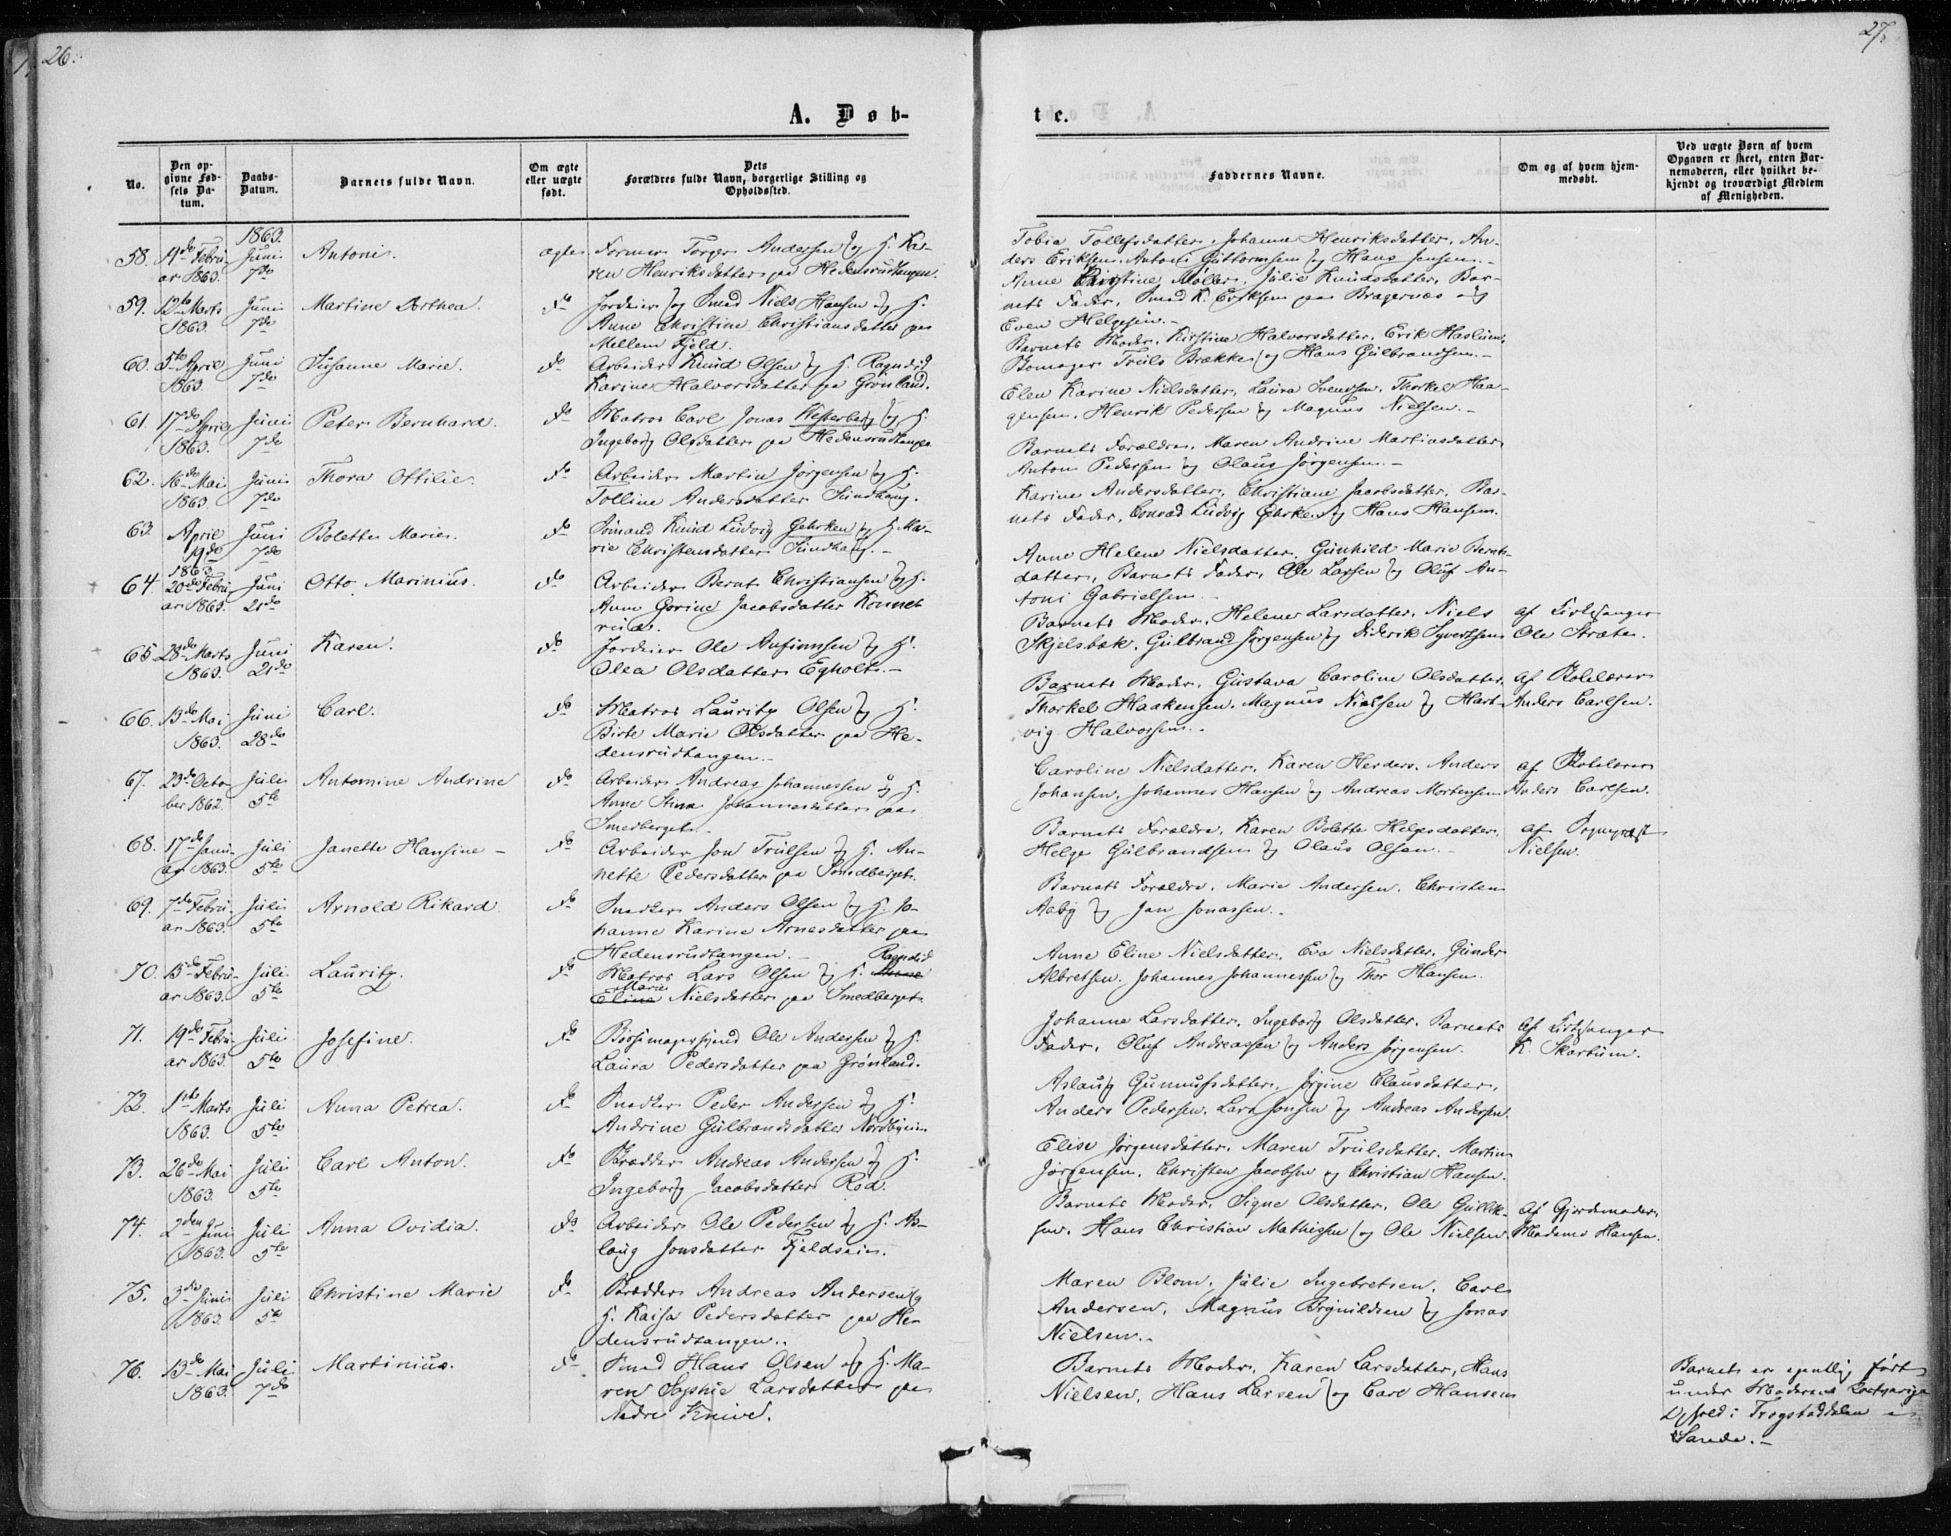 26.
27.
A. Døb-
te.
No.
Den op-
givne Fød-
sels Da-
tum.
Daabs-
Datum.
Barnets fulde Navn.
Om ægte
eller uægte
født.
Dets
Forældres fulde Navn, borgerlige Stilling og
Opholdssted.
Faddernes Navne.
Om og af hvem hjem-
medøbt.
Ved uægte Børn af hvem
Opgaven er skeet, enten Bar-
nemoderen, eller hvilket be-
kjendt og troværdigt Medlem
af Menigheden.
1863.
58. 19de Febru- Juni Antoni. ægte Former Torger Andersen og H. Ka-
ar 1863. 7de ren Henriksdatter paa Hedensrudtangen.
Tobia Tollefsdatter, Johanne Henriksdatter, An-
ders Eriksen, Antoni Guttormsen og Hans Jensen.-
59. 12te Marts Juni Martine Dorthea. do Jordeier og Smed Niels Hansen og H.
1863. 7de Anne Christine Christiansdatter paa
Mellem Fjeld.
Anne Christine Møller, Julie Knudsdatter, Bar-
nets Fader, Smed K. Eriksen paa Bragernæs og
Even Helgesen.-
60. 5te April Juni Susanne Marie. do Arbeider Knud Olsen og H. Ragndid
1863. 7de Karine Halvorsdatter paa Grønland.
Barnets Moder, Kirstine Halvorsdatter, Erik Haslum,
Bomager Truls Brække og Hans Gulbrandsen.-
61. 17de April Juni Peter Bernhard. do Matros Carl Jonas Westerberg og H.
1863. 7de Ingeborg Olsdatter paa Hedensrudtangen
Elen Karine Nielsdatter, Laura Svendsen, Thorkel Haa-
gensen, Henrik Pedersen og Magnus Nielsen.-
62. 16de Mai Juni Thora Ottilie. do Arbeider Martin Jørgensen og H.
1863. 7de Tolline Andersdatter Sundhaug.
Barnets Forældre, Maren Andrine Martinsdatter
Anton Pedersen og Olaus Jørgensen.-
63. April Juni Bolette Marie. do Sømand Knud Ludvig Gehrken og H. Ma-
19de 7de rie Christensdatter Sundhaug.-
1863.
Karine Andersdatter, Christiane Jacobsdatter, Bar-
nets Fader, Conrad Ludvig Gehrken og Hans Hansen.
64. 20de Febru- Juni Otto Marinius. do Arbeider Bernt Christiansen og H.
ar 1863. 21de Anne Gorine Jacobsdatter Konne-
rud.
Anne Helene Nielsdatter, Gunhild Marie Bernts-
datter, Barnets Fader, Ole Larsen og Oluf An-
toni Gabrielsen.
65 28de Marts Juni Karen. do Jordeier Ole Anfinnsen og H.
1863. 21de Olea Olsdatter Egholt.-
Barnets Moder, Helene Larsdatter, Niels
Skjelsbæk, Gulbrand Jørgensen og Diderik Syvertsen
af Kirkesanger
Ole Stræte.
66. 13de Mai Juni Carl. do Matros Lauritz Olsen og H.
1863. 28de Birte Marie Olsdatter paa He-
densrudtangen.-
Barnets Moder, Gustava Caroline Olsdatter,
Thorkel Haakensen, Magnus Nielsen og Hart-
vig Halvorsen.-
af Skolelærer
Anders Carlsen.
67. 23de Octo- Juli Antomine Andrine do Arbeider Andreas Johannessen og H.
ber 1862. 5te Anne Stina Johannesdatter paa
Smedberget.
Caroline Nielsdatter, Karen Herders, Anders
Johansen, Johannes Hansen og Andreas Mortensen
af Skolelærer
Anders Carlsen.
68. 17de Janu- Juli Janette Hansine - do Arbeider Jon Trulsen og H. An-
ar 1863. 5te nette Pedersdatter paa Smedberget.
Barnets Forældre, Karen Bolette Helgesdatter,
Helge Gulbrandsen og Olaus Olsen.-
af Sognepræst
Nielsen.
69. 7de Febru- Juli Arnold Rikard do Snedker Anders Olsen og H. Jo-
ar 1863. 5te hanne Karine Arnesdatter paa
Hedensrudtangen.-
Barnets Forældre, Marie Andersen, Christen
Aaby og Jan Jonassen.-
70. 15de Febru- Juli Lauritz. do Matros Lars Olsen og H. Anne Ragndid
ar 1863. 5te Eline Marie Nielsdatter paa Smedberget
Anne Eline Nielsdatter, Eva Nielsdatter, Gunder
Albretsen, Johannes Johannessen og Thor Hansen.
71. 19de Febru- Juli Josefine. do Bøssemagersvend Ole Andersen og H.
ar 1863. 5te Laura Pedersdatter paa Grønland.
Johanne Larsdatter, Ingeborg Olsdatter, Barnets
Fader, Oluf Andreassen og Anders Jørgensen.
af Kirkesanger
K. Skartum.
72. 1ste Marts Juli Anna Petrea. do Snedker Peder Andersen og H.
1863. 5te Andrine Gulbrandsdatter Nordbyeie.
Aslaug Gunnufsdatter, Jørgine Clausdatter,
Anders Pedersen, Lars Jonsen og Andreas Andersen.
73. 26de Mai Juli Carl Anton. do Skrædder Andreas Andersen og H.
1863. 5te Ingeborg Jacobsdatter Rød.
Elise Jørgensdatter, Maren Trulsdatter, Martin
Jørgensen, Christen Jacobsen og Christian Hansen.
74. 2den Juni Juli Anna Ovidia. do Arbeider Ole Pedersen og H. As-
1863. 5te laug Jonsdatter Fjeldseie.
Barnets Moder, Signe Olsdatter, Ole Gullik-
sen, Hans Christian Mathissen og Ole Nielsen.
af Gjordemoder,
Madame Hansen.
75. 3de Juni Juli Christine Marie do Skrædder Andreas Andersen og
1863. 5te H. Kaisa Pedersdatter paa He-
densrudtangen.
Maren Blom, Julie Ingebretsen, Carl
Andersen, Magnus Brynildsen og Jonas
Nielsen.-
76. 13de Mai Juli Martinius. do Smed Hans Olsen og H. Ma-
1863. 7de ren Sophie Larsdatter paa
Nedre Knive.
Barnets Moder, Karen Larsdatter, Hans
Nielsen, Hans Larsen og Carl Hansen
Barnet er egentlig født
under Moderens
Ophold i Trogstaddalen i
Sande.-